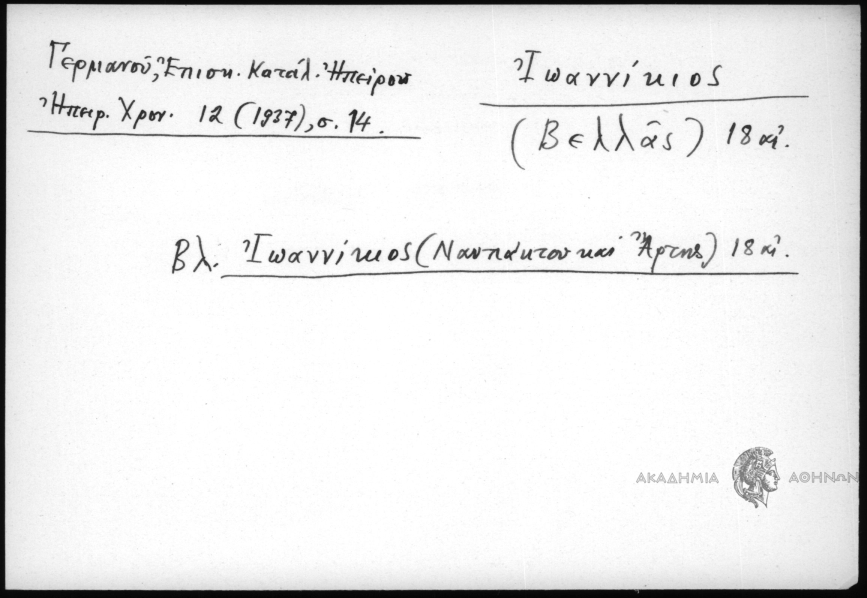 Γερμανοῦ, Ἐπισκ. Κατάλ. Ἠπείρου
Ἠπειρ. Χρον. 12 (1937), σ. 14.
Ἰωαννίκιος
(Βελλᾶς) 18 αἰ.
Βλ. Ἰωαννίκιος (Ναυπάκτου καὶ Ἄρτης) 18 αἰ.
ΑΚΑΔΗΜΙΑ ΑΘΗΝΩΝ